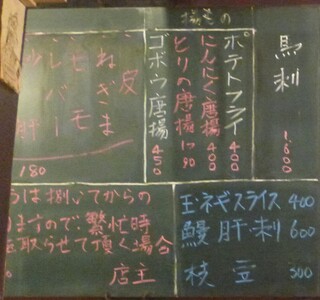 揚もの
馬刺
1,800
ポテトフライ 400
にんにく唐揚 400
とりの唐揚
ゴボウ唐揚 450
皮
ねぎま
セモ
レバー
180
玉ネギスライス 400
鰻肝刺 600
枝豆 300
は捌いてからの
ますので、繁忙時
取らせて頂く場合
店主